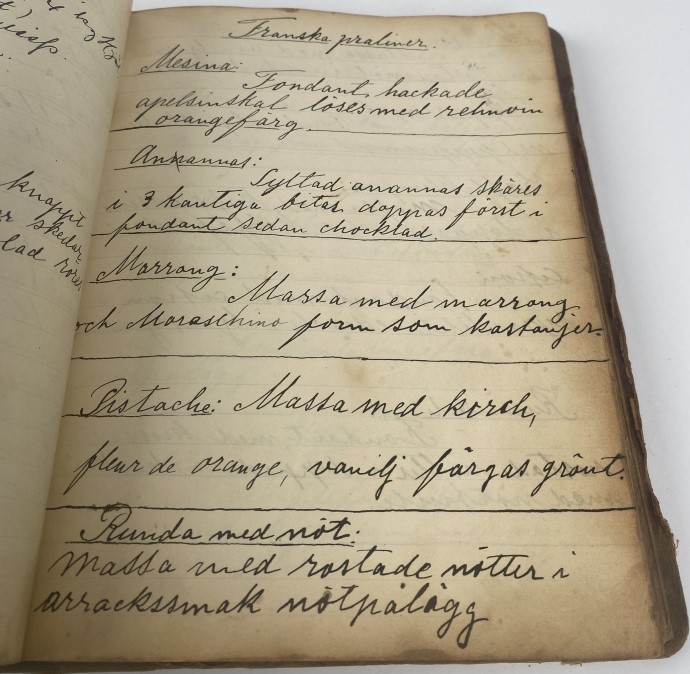 Franska praliner.
Mesina:
Fondant, hackade
apelsinskal löses med rehnvin
orangefärg.
Anxannas:
Syltad anannas skäres
i 3 kantiga bitar doppas först i
fondant sedan chocklad.
Marrong:
Massa med marrong
och Moraschino form som kastanjer.
Pistache: Massa med kirch,
fleur de orange, vanilj färgas grönt.
Runda med nöt:
Massa med rostade nötter i
arrackssmak nötpålägg
knappt
skedar
lad